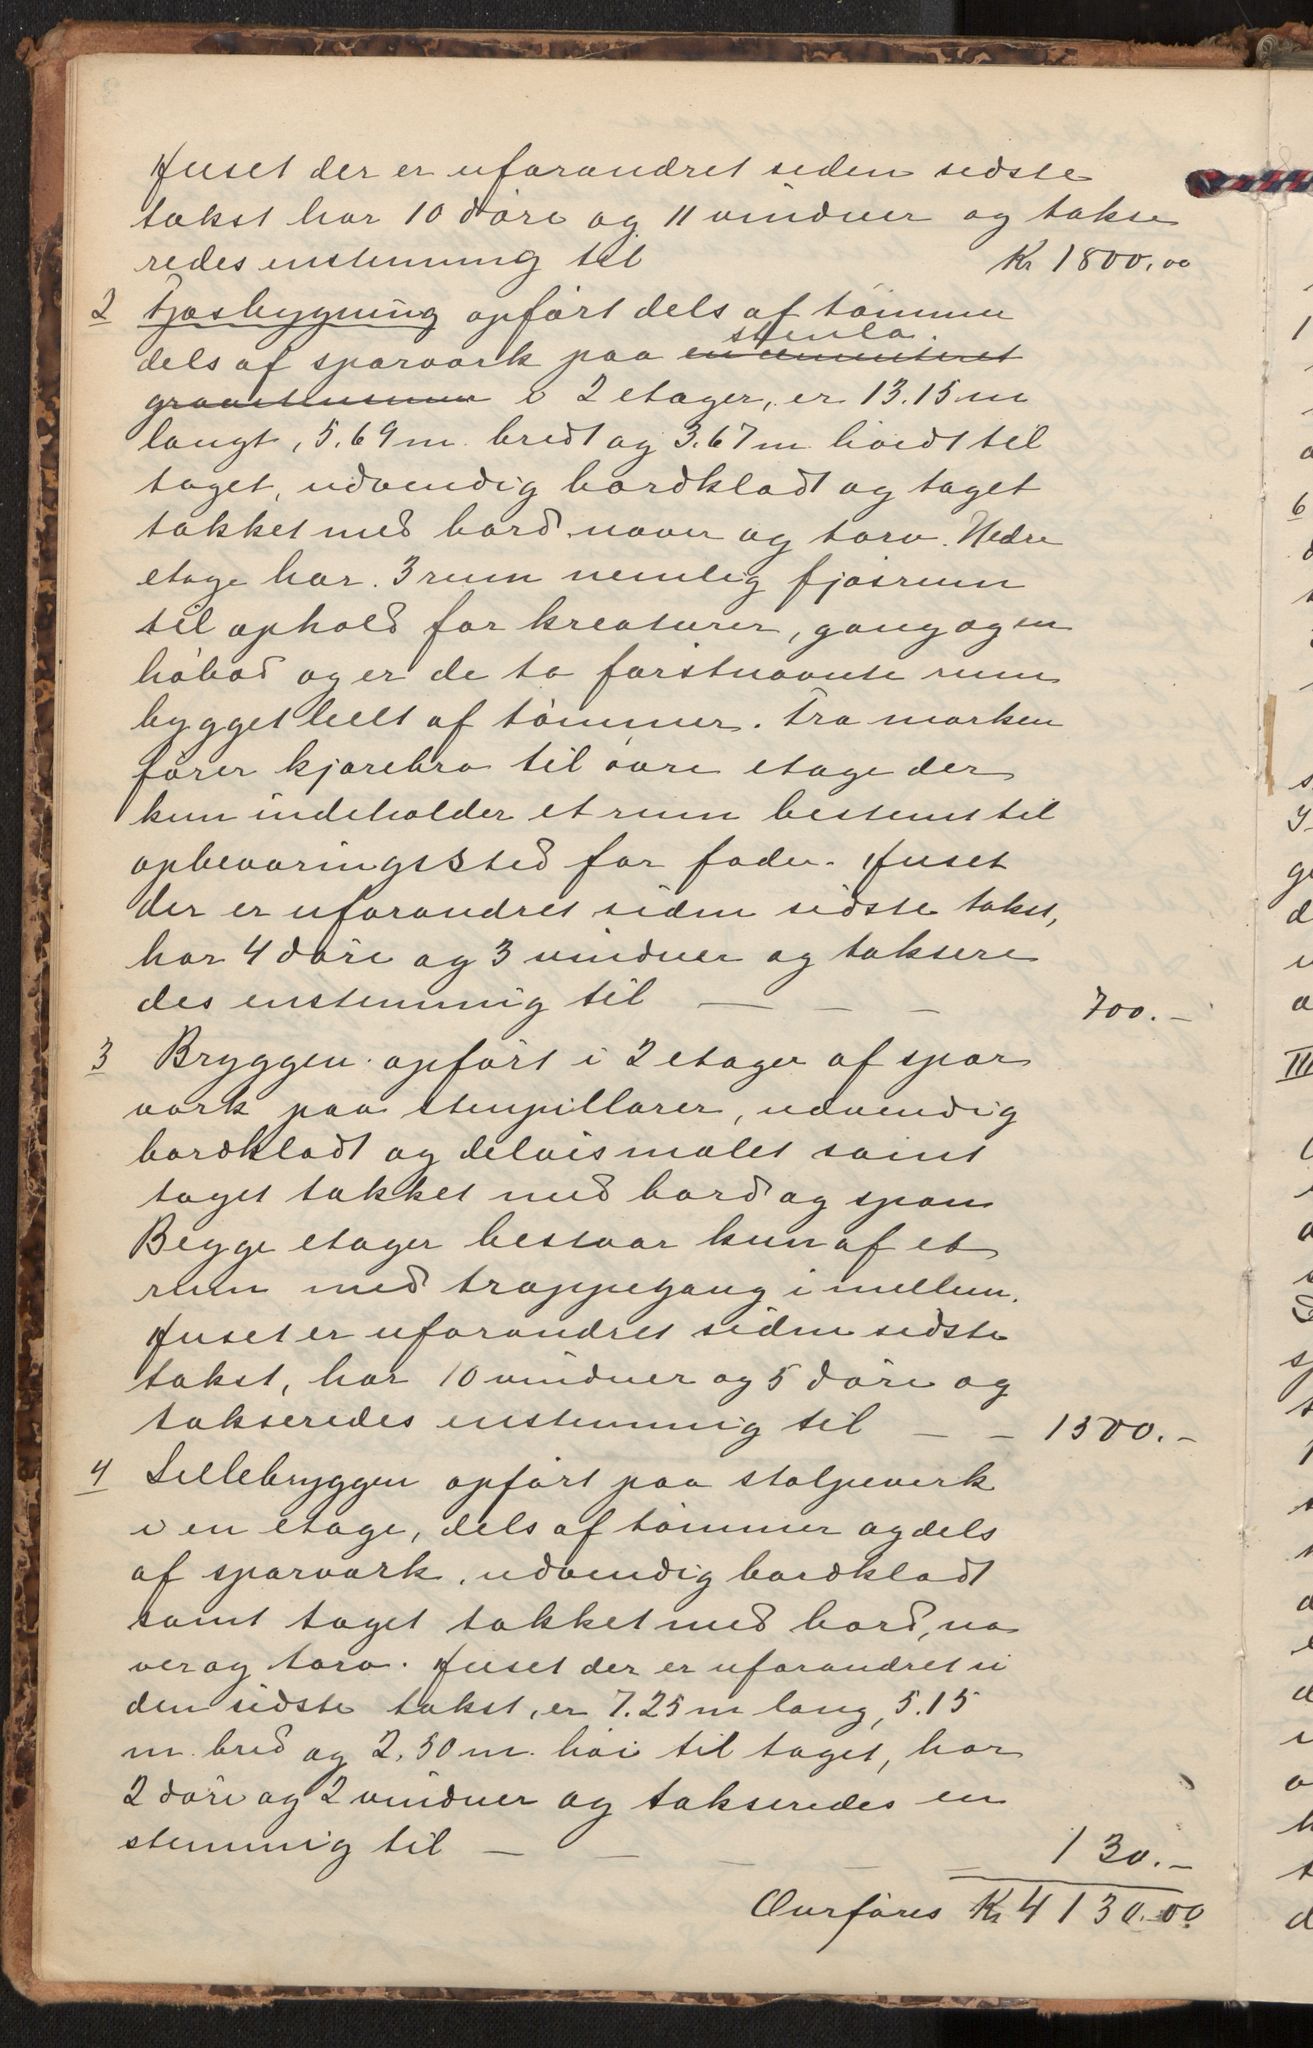 Huset der er uforandret siden sidste
takst har 10 döre og 11 vinduer og takse
redes enstemmig til Kr 1800,00
2 Fjøsbygning opført dels af tömmer
stenla.
dels af sparværk paa en cementeret
graastensmur i 2 etager, er 13.15 m
langt, 5.69 m. bredt og 3.67 m höidt til
taget, udvendig bordklædt og taget
tækket med bord, næver og torv. Nedre
etage har 3 rum nemlig fjøsrum
til ophold for kreaturer, gang og en
høbod og er de to førstnævnte rum
bygget helt af tömmer. Fra marken
fører kjørebro til övre etage der
kun indeholder et rum bestemt til
opbevaringssted for foder. Huset
der er uforandret siden sidste takst,
har 4 döre og 3 vinduer og taksere
des enstemmig til — — — 700.—
3 Bryggen opført i 2 etager af spar
værk paa stenpillarer, udvendig
bordklædt og delvis malet samt
taget tækket med bord og spon
Begge etager bestaar kun af et
rum med trappegang i mellem.
Huset er uforandret siden sidste
takst, har 10 vinduer og 5 döre og
takseredes enstemmig til — — 1500.—
4 Lillebryggen opført paa stolpeverk
i en etage, dels af tömmer og dels
af sparværk, udvendig bordklædt
samt taget tækket med bord, næ
ver og torv. Huset der er uforandret si
den sidste takst, er 7.25 m lang, 5.15
m. bred og 2.50 m. höi til taget, har
2 döre og 2 vinduer og takseredes en
stemmig til — — — — — 130.—
Overføres Kr 4130.00